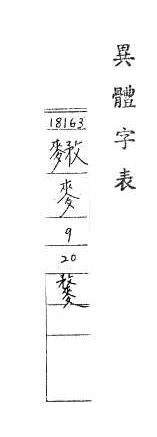 異體字表
18163
麥
9
20